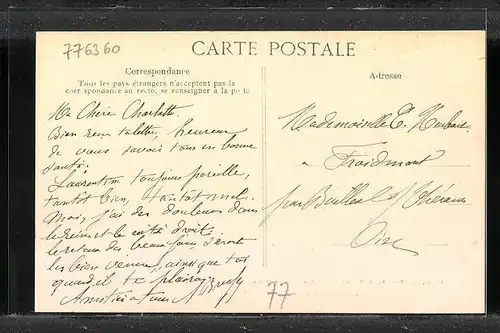 776360
CARTE POSTALE
Correspondance
Tous les pays étrangers n'acceptent pas la
correspondance au recto, se renseigner à la poste
Adresse
Ma Chère Charlotte
Bien reçu ta lettre, heureux
de vous savoir tous en bonne
santé.
Laurentine toujours pareille,
tantôt bien, tantôt mal.
Moi, j'ai des douleurs dans
les reins et le côté droit.
le retour des beaux jours seront
les bien venus, ainsi que toi
quand il te plaira,
Amitiés à tous
Mademoiselle E.
à Froidmont
par Bailleul s/ Thérain
Oise
77